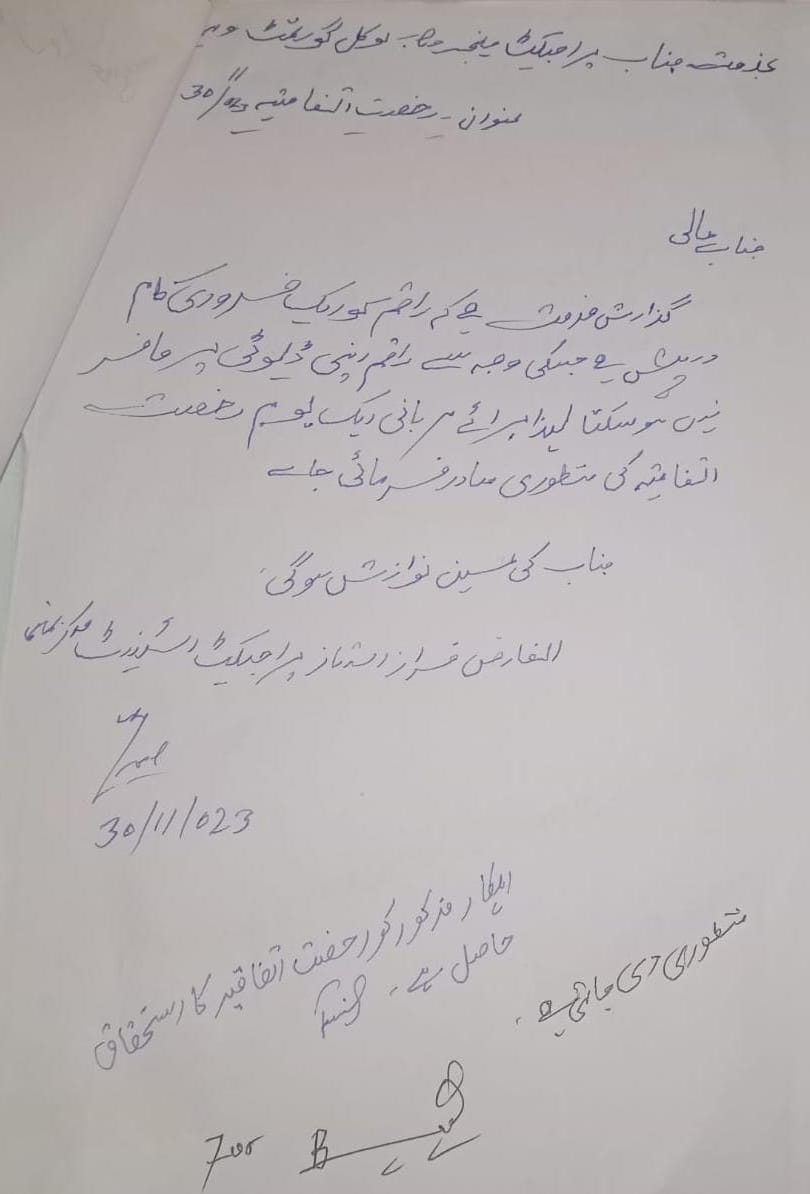 بخدمت جناب پراجیکٹ مینجر صاحب لوکل گورنمنٹ
عنوان۔ رخصت اتفاقیہ 30/11/023
جناب عالی
گذارش خدمت ہے کہ راقم کو ایک ضروری کام
درپیش ہے جسکی وجہ سے راقم اپنی ڈیوٹی پر حاضر
نہیں ہو سکتا لہذا برائے مہربانی ایک یوم رخصت
اتفاقیہ کی منظوری صادر فرمائی جائے
جناب کی عین نوازش ہوگی۔
العارض پراجیکٹ اسسٹنٹ مرکز
30/11/023
اہلکار مذکور کو رخصت اتفاقیہ کا استحقاق
حاصل ہے۔
منظوری دی جاتی ہے۔
For